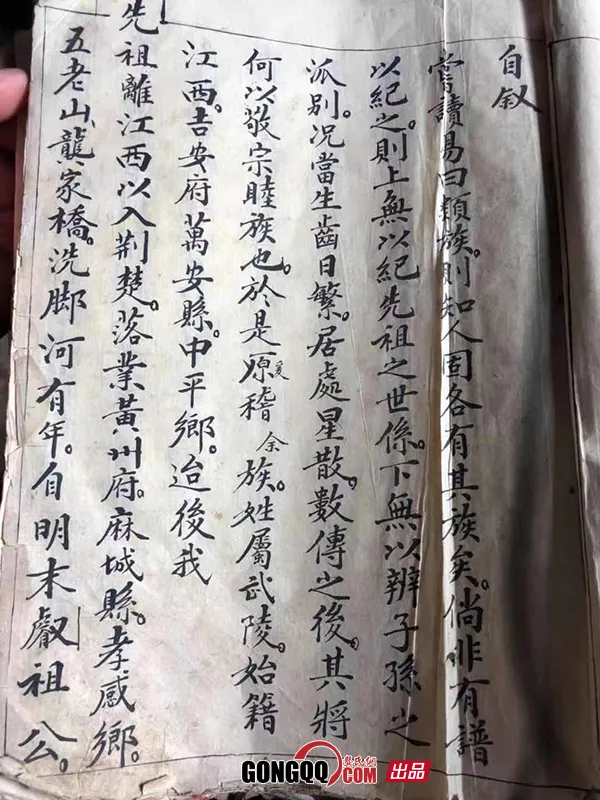 自叙
嘗讀易曰類族。則知人固各有其族矣。倘非有譜
以紀之。則上無以紀先祖之世係。下無以辨子孫之
派別。况當生齒日繁。居處星散。數傳之後。其將
何以敬宗睦族也。於是原爰稽余族。姓屬武陵。始籍
江西。吉安府萬安縣。中平鄉。迨後我
先祖離江西以入荆楚。落業黃州府。麻城縣。孝感鄉。
五老山龔家橋。洗脚河有年。自明末叡祖公。
龔氏網
GONGQQ.COM 出品